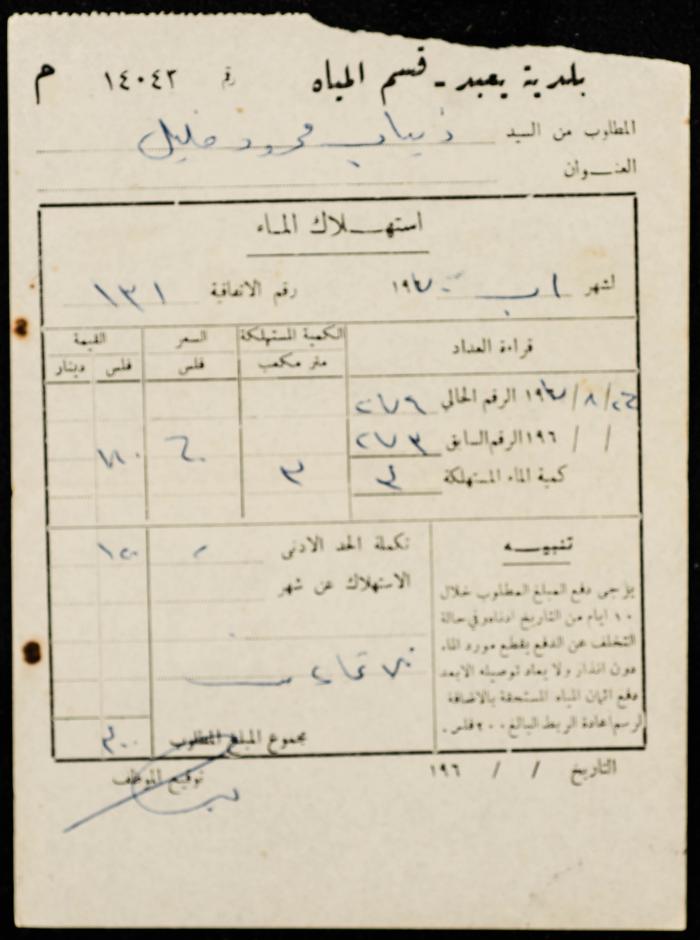 بلدية يعبد - قسم المياه رقم ١٤٠٤٢ م
المطلوب من السيد ذياب محمود خليل
العنوان
استهلاك الماء
لشهر اب ١٩٧٠ رقم الاتفاقية ١٣١
قراءة العداد الكمية المستهلكة السعر القيمة
متر مكعب فلس فلس دينار
٨ / ١٩٧ الرقم الحالي ٢٧٦
/ / ١٩٦ الرقم السابق ٢٧٣
كمية الماء المستهلكة ٣ ٣ ٦٠ ١٨٠
تنبيه
يرجى دفع المبلغ المطلوب خلال
١٠ ايام من التاريخ ادناه وفي حالة
التخلف عن الدفع يقطع مورد الماء
دون انذار ولا يعاد توصيله الا بعد
دفع اثمان المياه المستحقة بالاضافة
لرسم اعادة الربط البالغ ٢٠٠ فلس .
تكملة الحد الادنى ١٢٠
الاستهلاك عن شهر
مجموع المبلغ المطلوب ٣٠٠
التاريخ / / ١٩٦ توقيع الموظف